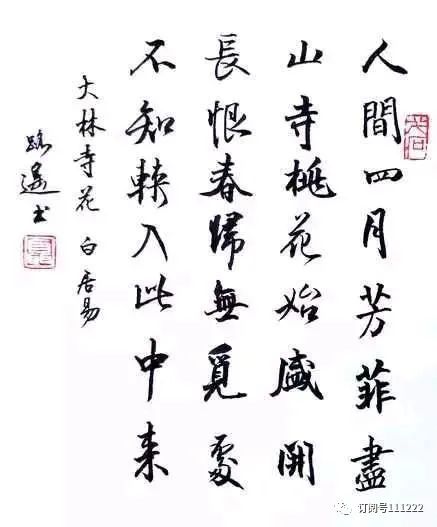 人間四月芳菲盡
山寺桃花始盛開
長恨春歸無覓處
不知轉入此中来
大林寺花 白居易
路遥书
订阅号111222